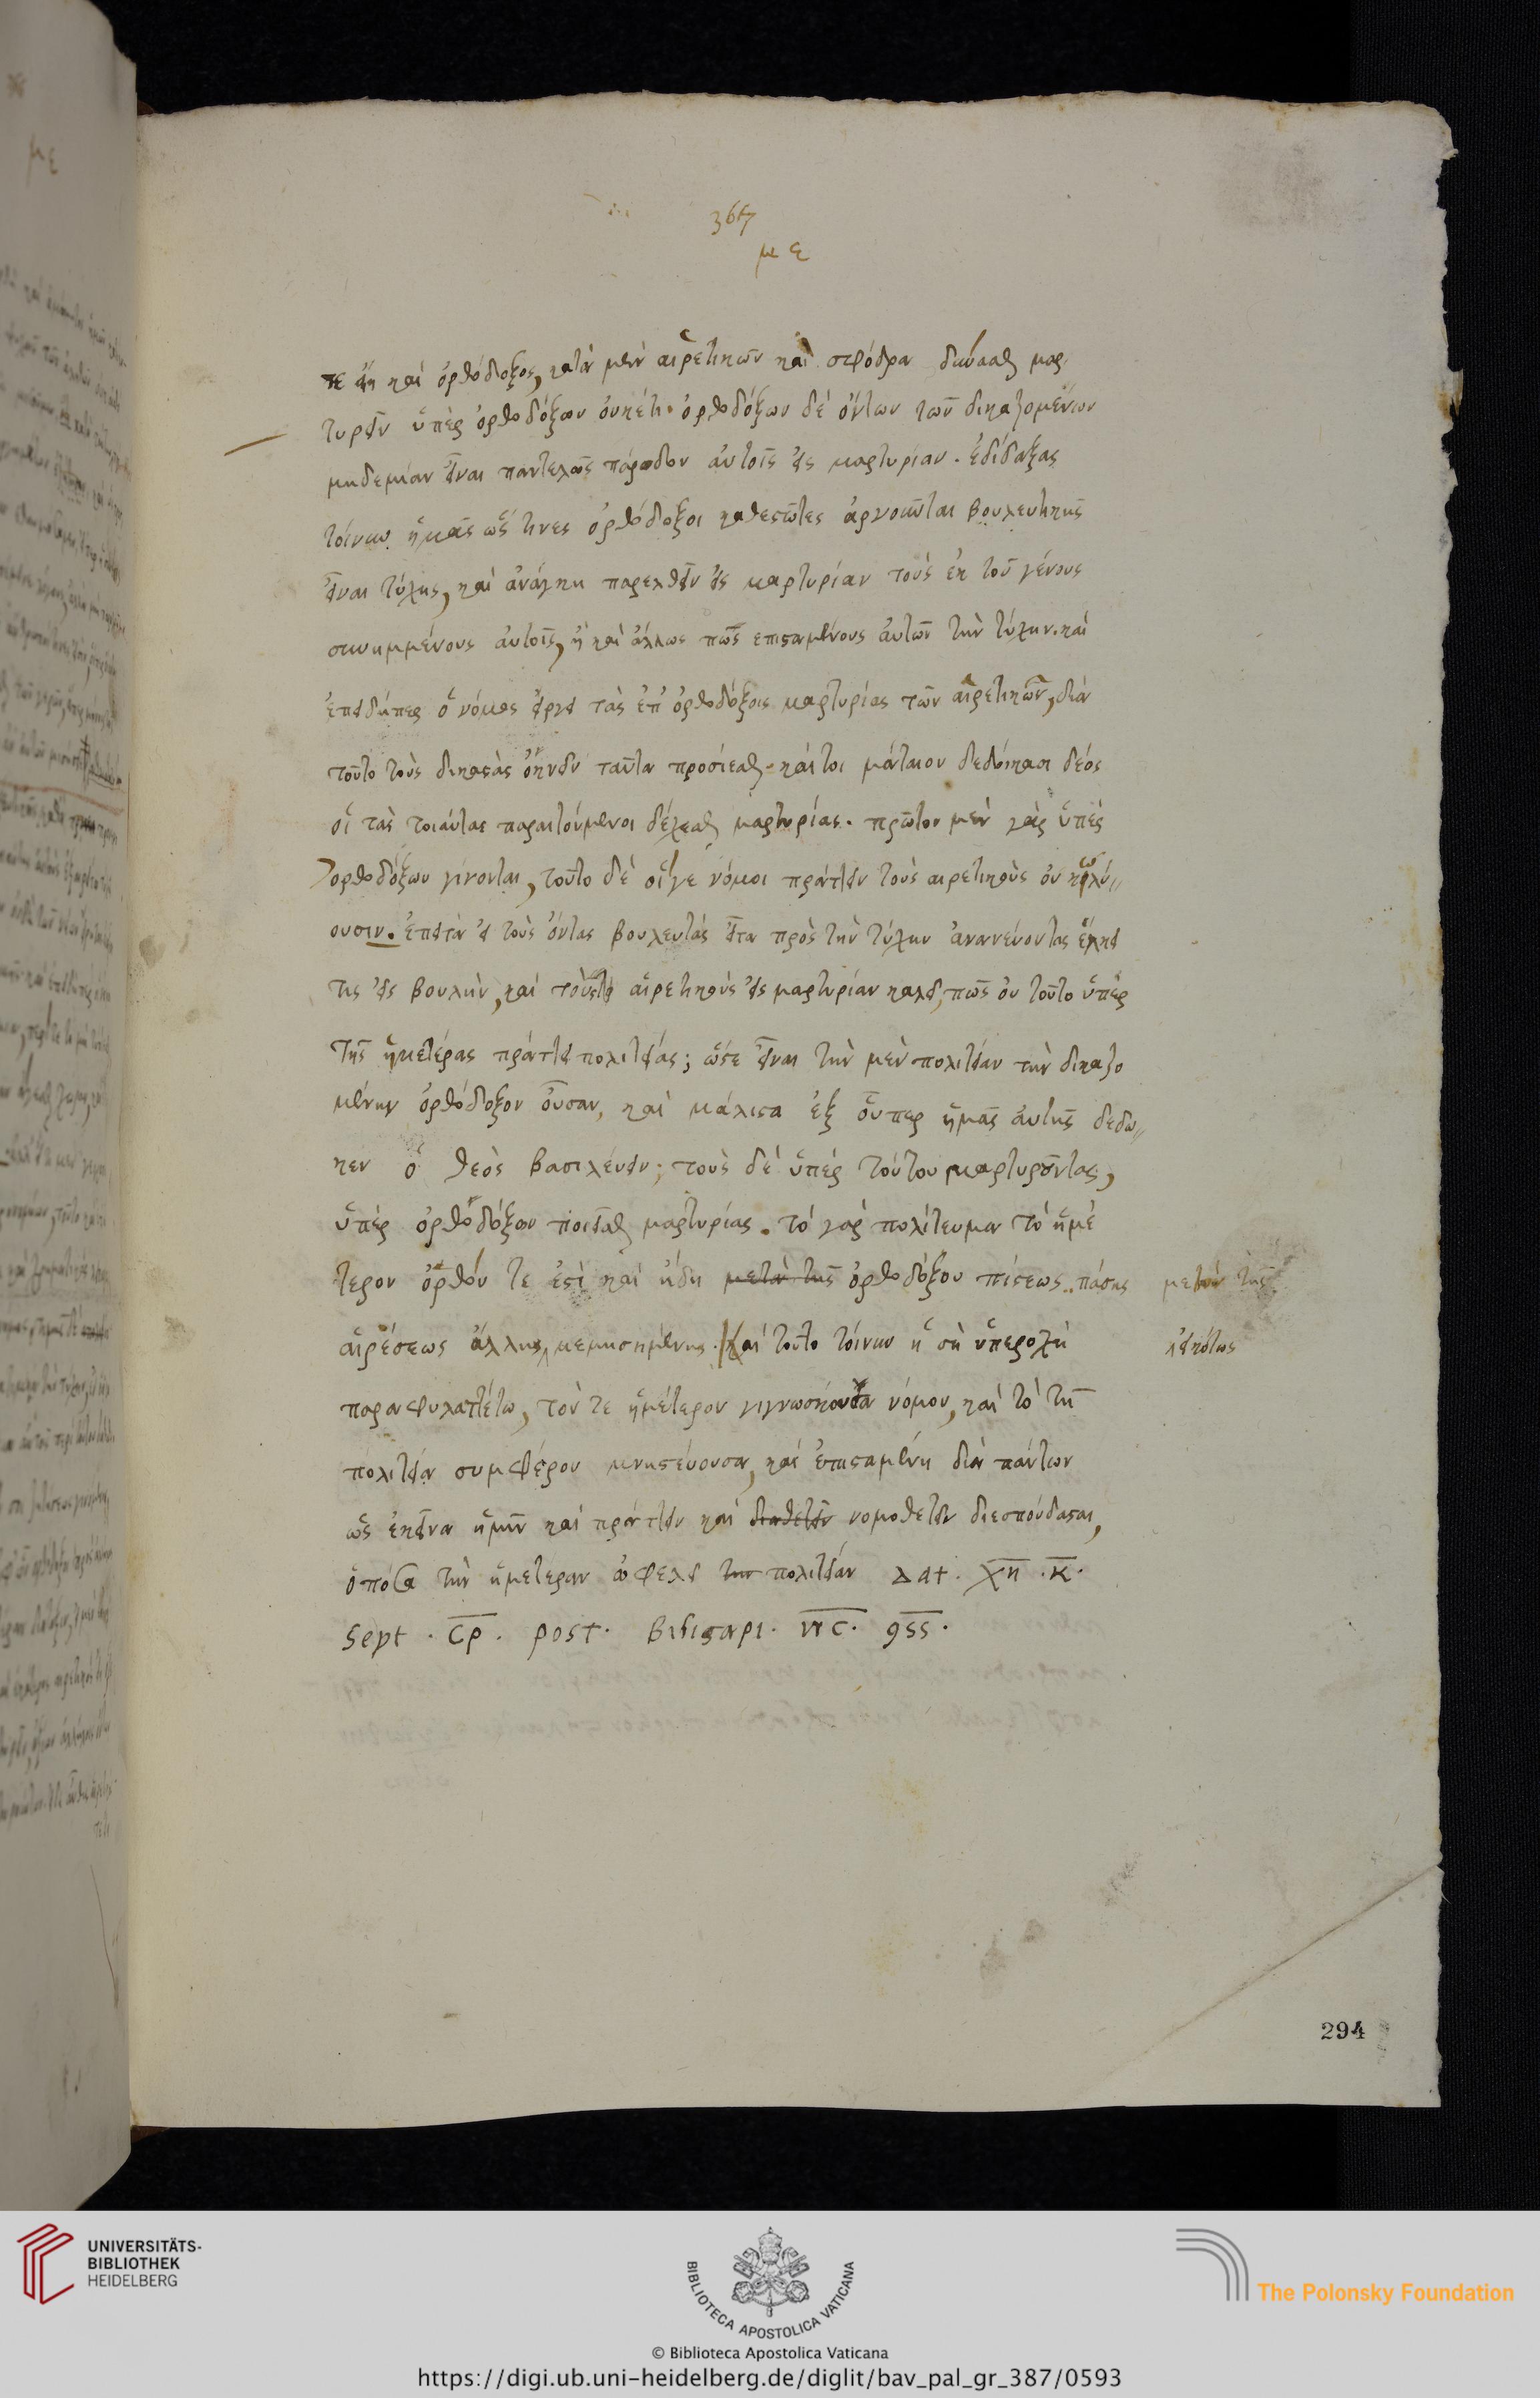 367
με
τε εἴη καὶ ὀρθόδοξος, κατὰ μὲν αἱρετικῶν καὶ σφόδρα δύνασθαι μαρ
τυρεῖν ὑπὲρ ὀρθοδόξων οὐκέτι· ὀρθοδόξων δὲ ὄντων τῶν δικαζομένων
μηδεμίαν εἶναι παντελῶς πάροδον αὐτοῖς εἰς μαρτυρίαν. ἐδίδαξας
τοίνυν ἡμᾶς ὥς τινες ὀρθόδοξοι καθεστῶτες ἀρνοῦνται βουλευτικῆς
εἶναι τύχης, καὶ ἀνάγκη παρελθεῖν εἰς μαρτυρίαν τοὺς ἐκ τοῦ γένους
συνημμένους αὐτοῖς, ἢ καὶ ἄλλως πῶς ἐπισταμένους αὐτῶν τὴν τύχην. καὶ
ἐπειδήπερ ὁ νόμος εἴργει τὰς ἐπ' ὀρθοδόξοις μαρτυρίας τῶν αἱρετικῶν, διὰ
τοῦτο τοὺς δικαστὰς ὀκνεῖν ταῦτα προσίεσθαι· καίτοι μάταιον δεδοίκασι δέος
οἱ τὰς τοιαύτας παραιτούμενοι δέχεσθαι μαρτυρίας. πρῶτον μὲν γὰρ ὑπὲρ
ὀρθοδόξων γίνονται, τοῦτο δὲ οἵ γε νόμοι πράττειν τοὺς αἱρετικοὺς οὐ κωλύ"
ουσιν. ἐπειτα εἰ τοὺς ὄντας βουλευτὰς εἶτα πρὸς τὴν τύχην ἀνανεύοντας ἕλκει
τις εἰς βουλὴν, καὶ τοὺς αἱρετικοὺς εἰς μαρτυρίαν καλεῖ, πῶς οὐ τοῦτο ὑπὲρ
τῆς ἡμετέρας πράττει πολιτείας; ὥστε εἶναι τὴν μὲν πολιτείαν τὴν δικαζο
μένην ὀρθόδοξον οὖσαν, καὶ μάλιστα ἐξ οὗπερ ἡμᾶς αὐτῆς δέδω"
κεν ὁ θεὸς βασιλεύειν; τοὺς δὲ ὑπὲρ τούτου μαρτυροῦντας,
ὑπὲρ ὀρθοδόξων ποιεῖσθαι μαρτυρίας. τὸ γὰρ πολίτευμα τὸ ἡμέ
τερον ὀρθόν τε ἐστὶ καὶ ἤδη μετὰ τῆς ὀρθοδόξου πίστεως.. πάσης μετὰ τῆς
αἱρέσεως ἄλλης μεμισημένης. καὶ τοῦτο τοίνυν ἡ σὴ ὑπεροχὴ εἰκότως
παραφυλαττέτω, τόν τε ἡμέτερον γιγνώσκουσα νόμον, καὶ τὸ τῇ
πολιτείᾳ συμφέρον μνηστεύουσα, καὶ ἐπισταμένη διὰ πάντων
ὡς ἐκεῖνα ἡμῖν καὶ πράττειν καὶ διαθεῖεῖν νομοθετεῖν διεσπούδασται,
ὁπόσα τὴν ἡμετέραν ὠφελεῖ τὴν πολιτείαν Δατ. χη. κ.
sept. cp. post. βιλισαρι. vic. 9ss.
294
UNIVERSITÄTS-
BIBLIOTHEK
HEIDELBERG
BIBLIOTECA APOSTOLICA VATICANA
The Polonsky Foundation
© Biblioteca Apostolica Vaticana
https://digi.ub.uni-heidelberg.de/diglit/bav_pal_gr_387/0593